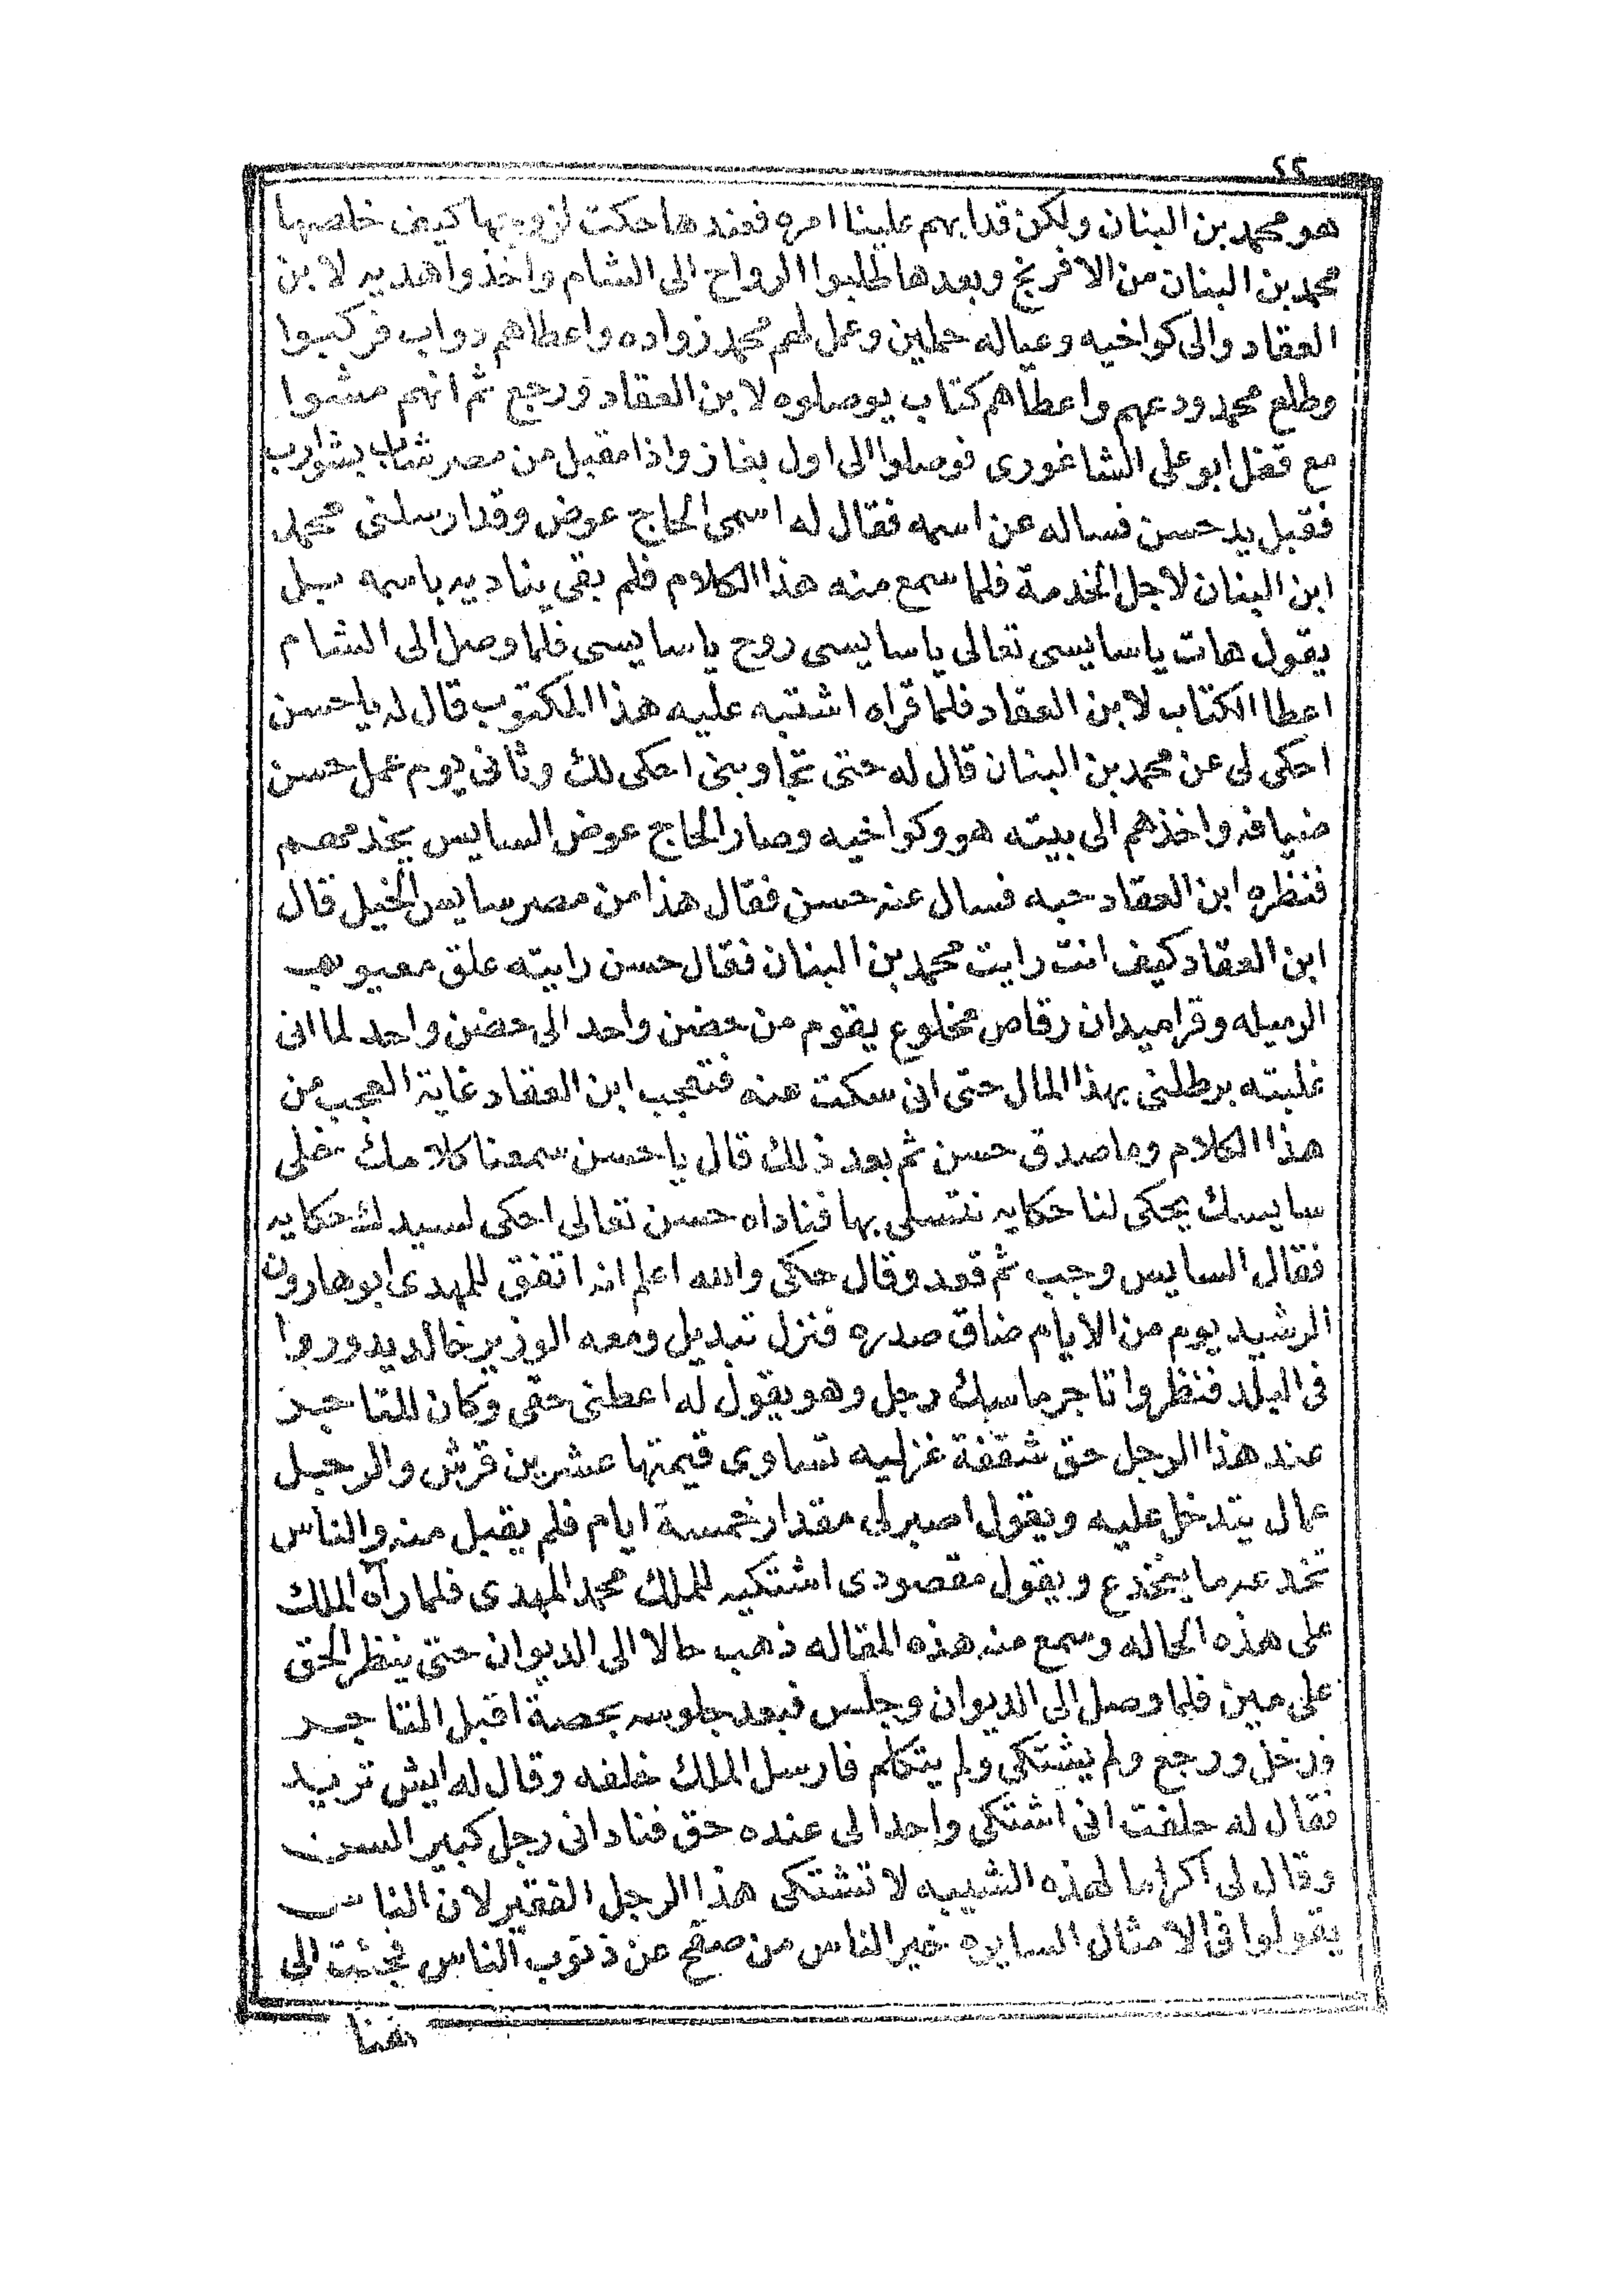 ٢٢
هو محمد بن البنان ولكن قد ابهم علينا امره فعندها حكت لزوجها كيف خلصها
محمد بن البنان من الافرنج وبعدها طلبوا الرواح الى الشام واخذوا هديه لابن
العقاد والى كواخيه وعياله حملين وعمل لهم محمد زواده واعطاهم دواب فركبوا
وطلع محمد ودعهم واعطاهم كتاب يوصلوه لابن العقاد ورجع ثم انهم مشوا
مع قفل ابو على الشاغورى فوصلوا الى اول بغاز واذا مقبل من مصر شاب بشوارب
فقبل يد حسن فساله عن اسمه فقال له اسمى الحاج عوض وقد ارسلنى محمد
ابن البنان لاجل الخدمة فلما سمع منه هذا الكلام فلم بقى يناديه باسمه بل
يقول هات ياسايسى تعالى ياسايسى روح ياسايسى فلما وصل الى الشام
اعطا الكتاب لابن العقاد فلما قراه اشتبه عليه هذا المكتوب قال له ياحسن
احكى لى عن محمد بن البنان قال له حتى تجاوبنى احكى لك وثانى يوم عمل حسن
ضيافه واخذهم الى بيته هو وكواخيه وصار الحاج عوض السايس يخدمهم
فنظره ابن العقاد حبه فسال عنه حسن فقال هذا من مصر سايس الخيل قال
ابن العقاد كيف انت رايت محمد بن البنان فقال حسن رايته علق معيوهب
الرميله وقراميدان رقاص مخلوع يقوم من حضن واحد الى حضن واحد لما انى
غلبته برطلنى بهذا المال حتى انى سكت عنه فتعجب ابن العقاد غاية العجب من
هذا الكلام وما صدق حسن ثم بعد ذلك قال ياحسن سمعنا كلامك خلى
سايسك يحكى لنا حكايه نتسلى بها فناداه حسن تعالى احكى لسيدك حكايه
فقال السايس وجب ثم قعد وقال حكى والله اعلم انه اتفق للمهدى ابو هارون
الرشيد يوم من الايام ضاق صدره فنزل تبديل ومعه الوزير خالد يدوروا
فى البلد فنظروا تاجر ماسك رجل وهو يقول له اعطنى حقى وكان للتاجر
عند هذا الرجل حق شقفة غزليه تساوى قيمتها عشرين قرش والرجل
عمال يتدخل عليه ويقول اصبر لى مقدار خمسة ايام فلم يقبل منه والناس
تخدعه ما ينخدع ويقول مقصودى اشتكيه للملك محمد المهدى فلما رآه الملك
على هذه الحاله وسمع منه هذه المقاله ذهب حالا الى الديوان حتى ينظر الحق
على مين فلما وصل الى الديوان وجلس فبعد جلوسه بحصة اقبل التاجر
ودخل ورجع ولم يشتكى ولم يتكلم فارسل الملك خلفه وقال له ايش تريد
فقال له حلفت انى اشتكى واحدا لى عنده حق فنادانى رجل كبير السن
وقال لى اكراما لهذه الشيبه لا تشتكى هذا الرجل الفقير لان الناس
يقولوا فى الامثال السايره خير الناس من صفح عن ذنوب الناس فجئت الى
هنا